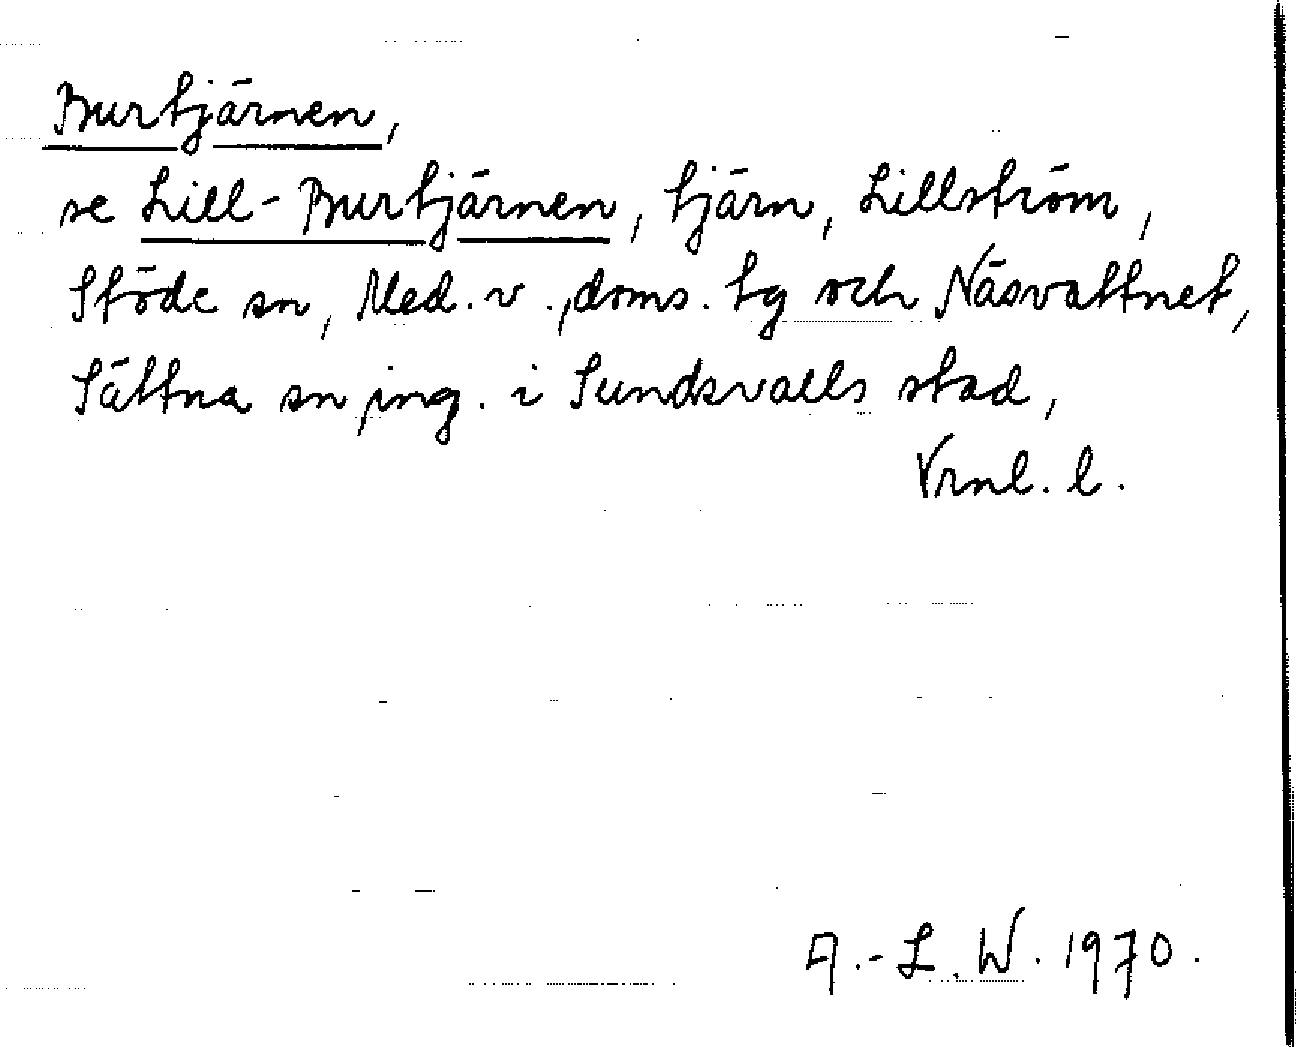 Burtjärnen,
se Lill-Burtjärnen, tjärn, Lillström,
Stöde sn, Med. v., doms. tg och Näsvattnet,
Sättna sn, ing. i Sundsvalls stad,
Vrnl. l.
A.-L. W. 1970.